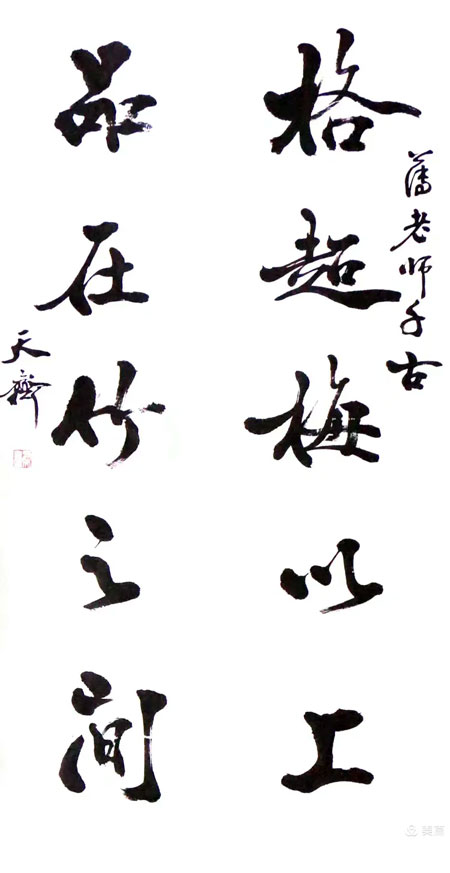 藩老师千古
格超梅以上
品在竹之间
天齊
美篇